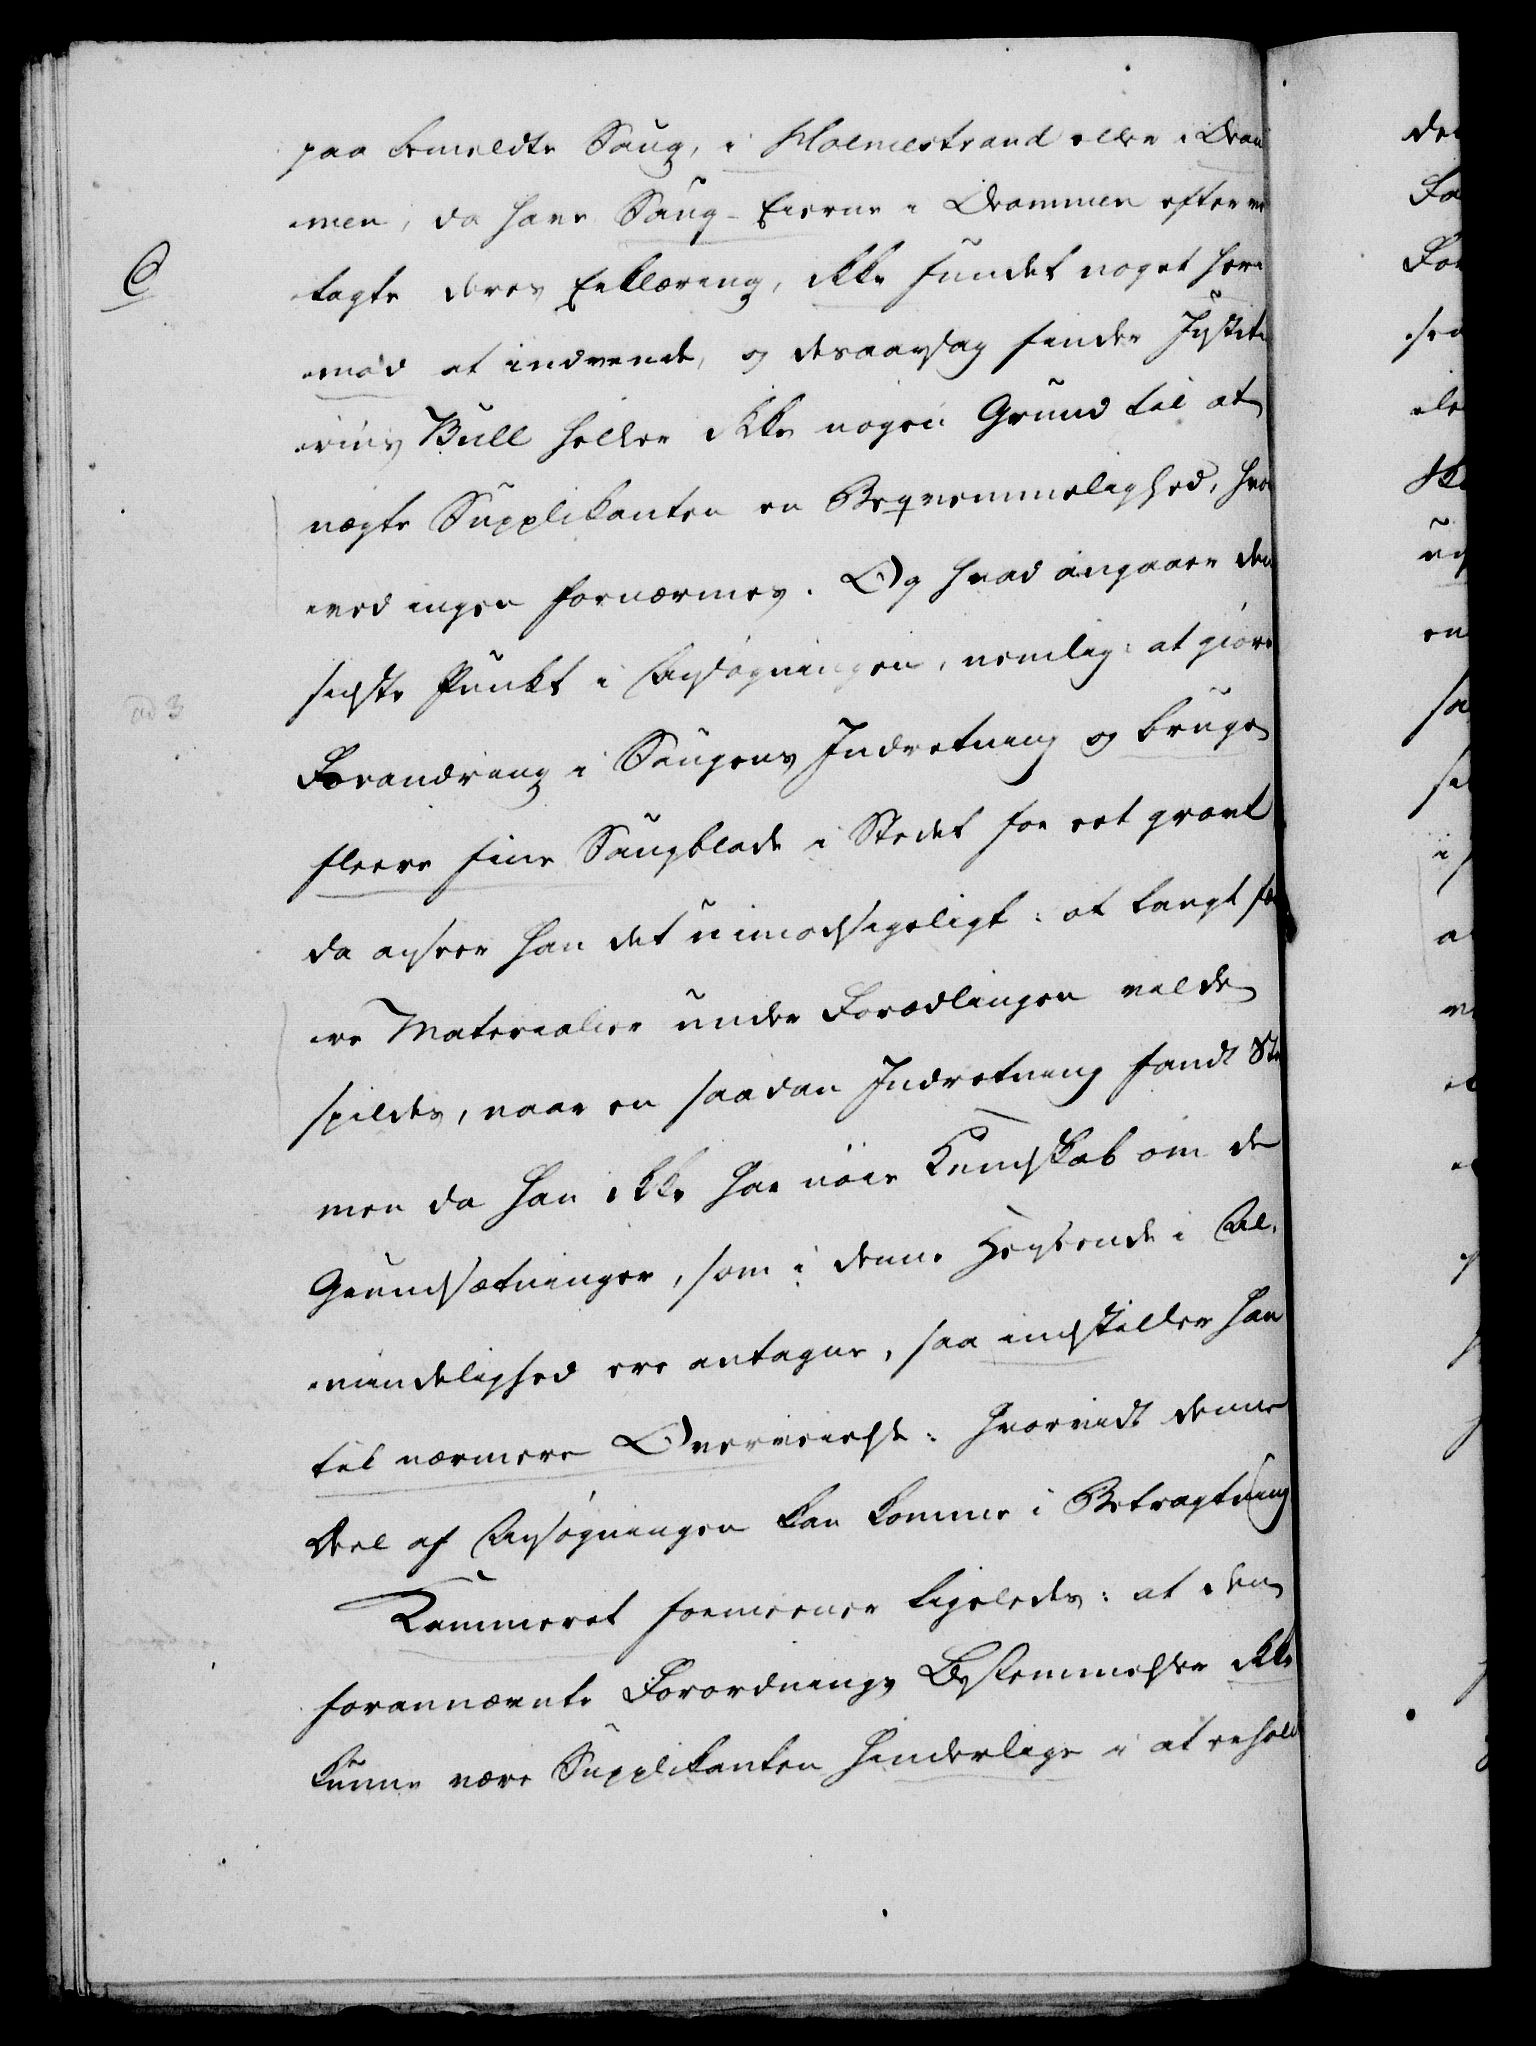 paa bemeldte Saug, i Holmestrand eller i Dram
men, da have Saug-Eierne i Drammen efter ved
lagte deres Erklæring, ikke fundet noget heri
C
mod at indvende, og desaarsag finder Justits
rius Bull heller ikke nogen Grund til at
nægte Supplikanten en Beqvemmelighed, hvor
ved ingen fornærmes. Og hvad angaaer den
sidste Punkt i Ansøgningen, nemlig: at giøre
ad 3
Forandring i Saugens Indretning og bruge
fleere fine Saugblade i Stedet for eet grovt
da anseer han det uimodsigeligt: at langt fær
re Materialier under Forædlingen vilde
spildes, naar en saadan Indretning fandt Sted
men da han ikke har nøie Kundskab om de
Grundsætninger, som i denne Henseende i Al-
mindelighed ere antagne, saa indstiller han
til nærmere Overveielse: hvorvidt denne
Deel af Ansøgningen kan komme i Betragtning
Kammeret formeener ligeledes: at den
forannævnte Forordnings Bestemmelser ikke
kunne være Supplikanten hinderlige i at erhold